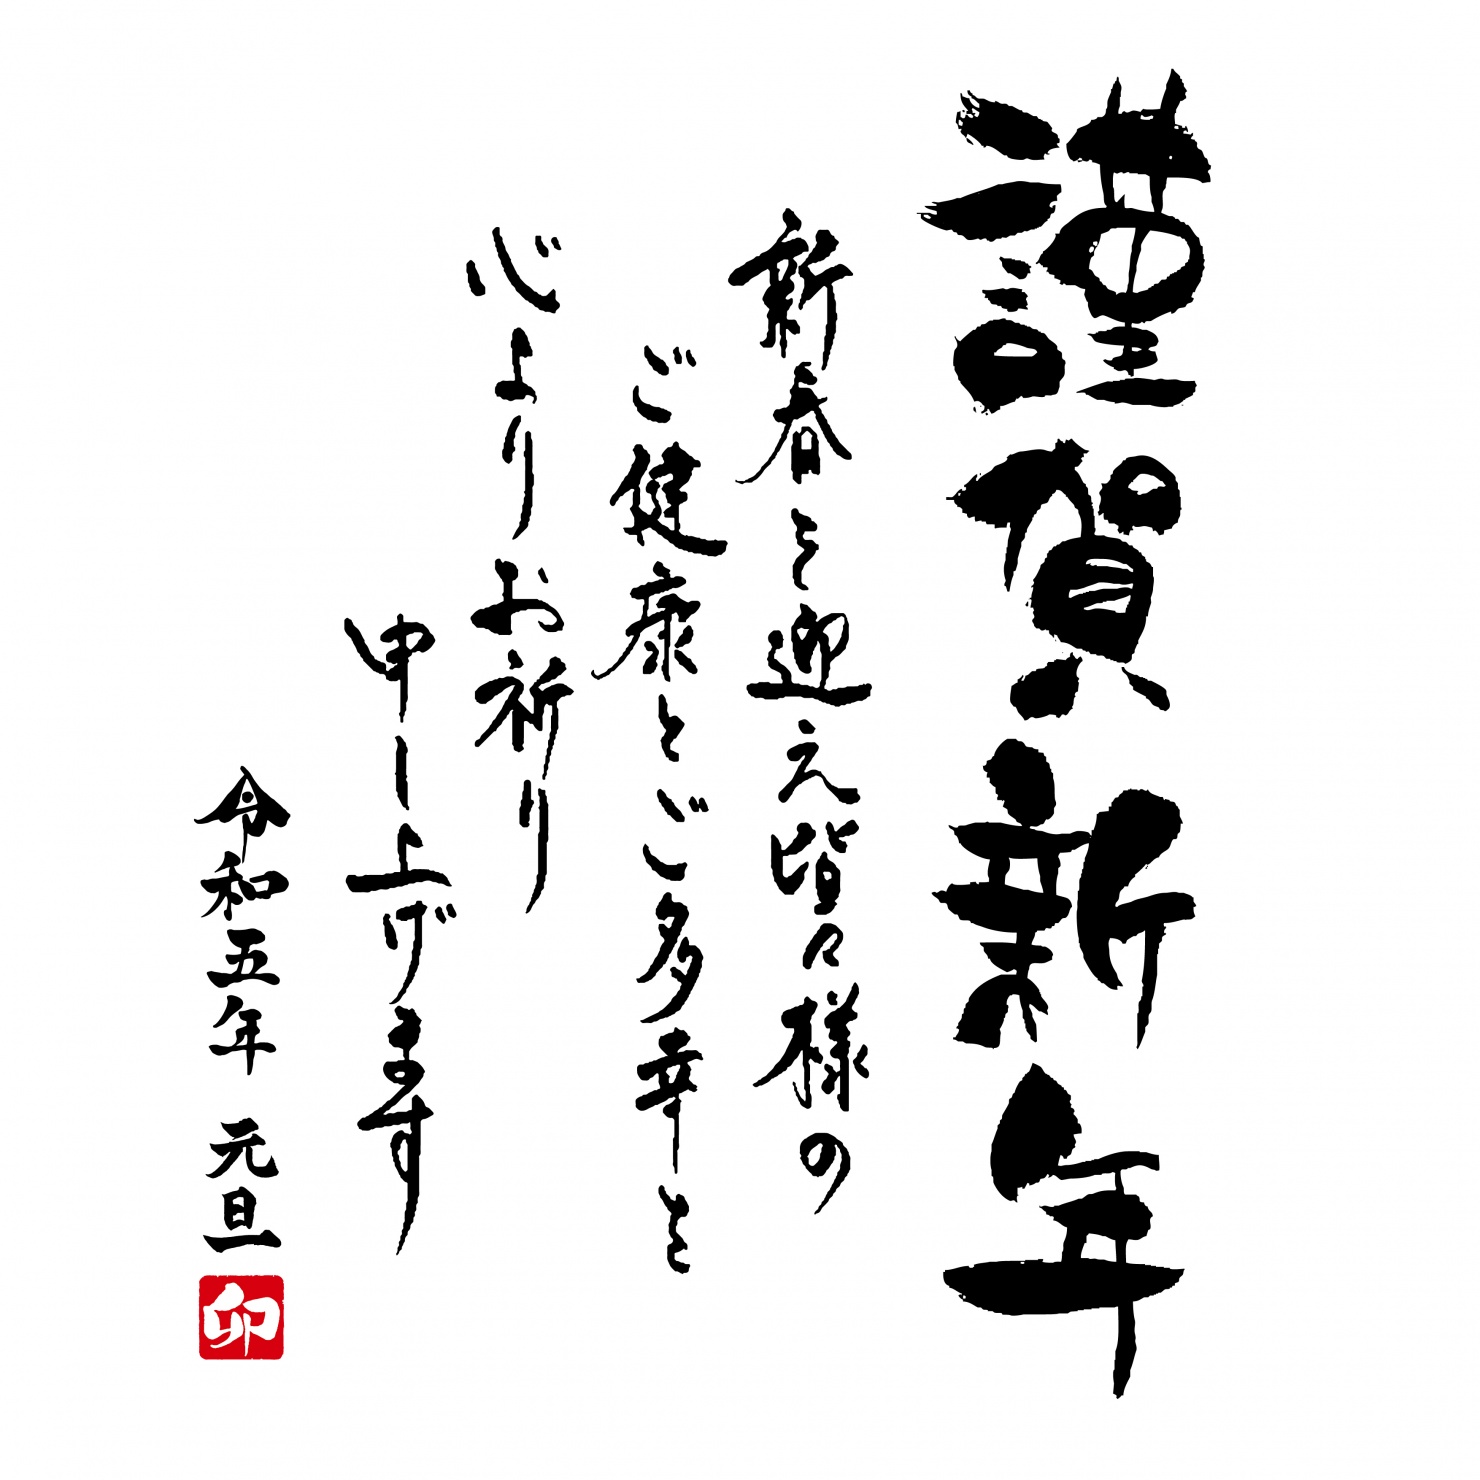 謹賀新年
新春を迎え皆々様の
ご健康とご多幸を
心よりお祈り
申し上げます
令和五年 元旦
卯